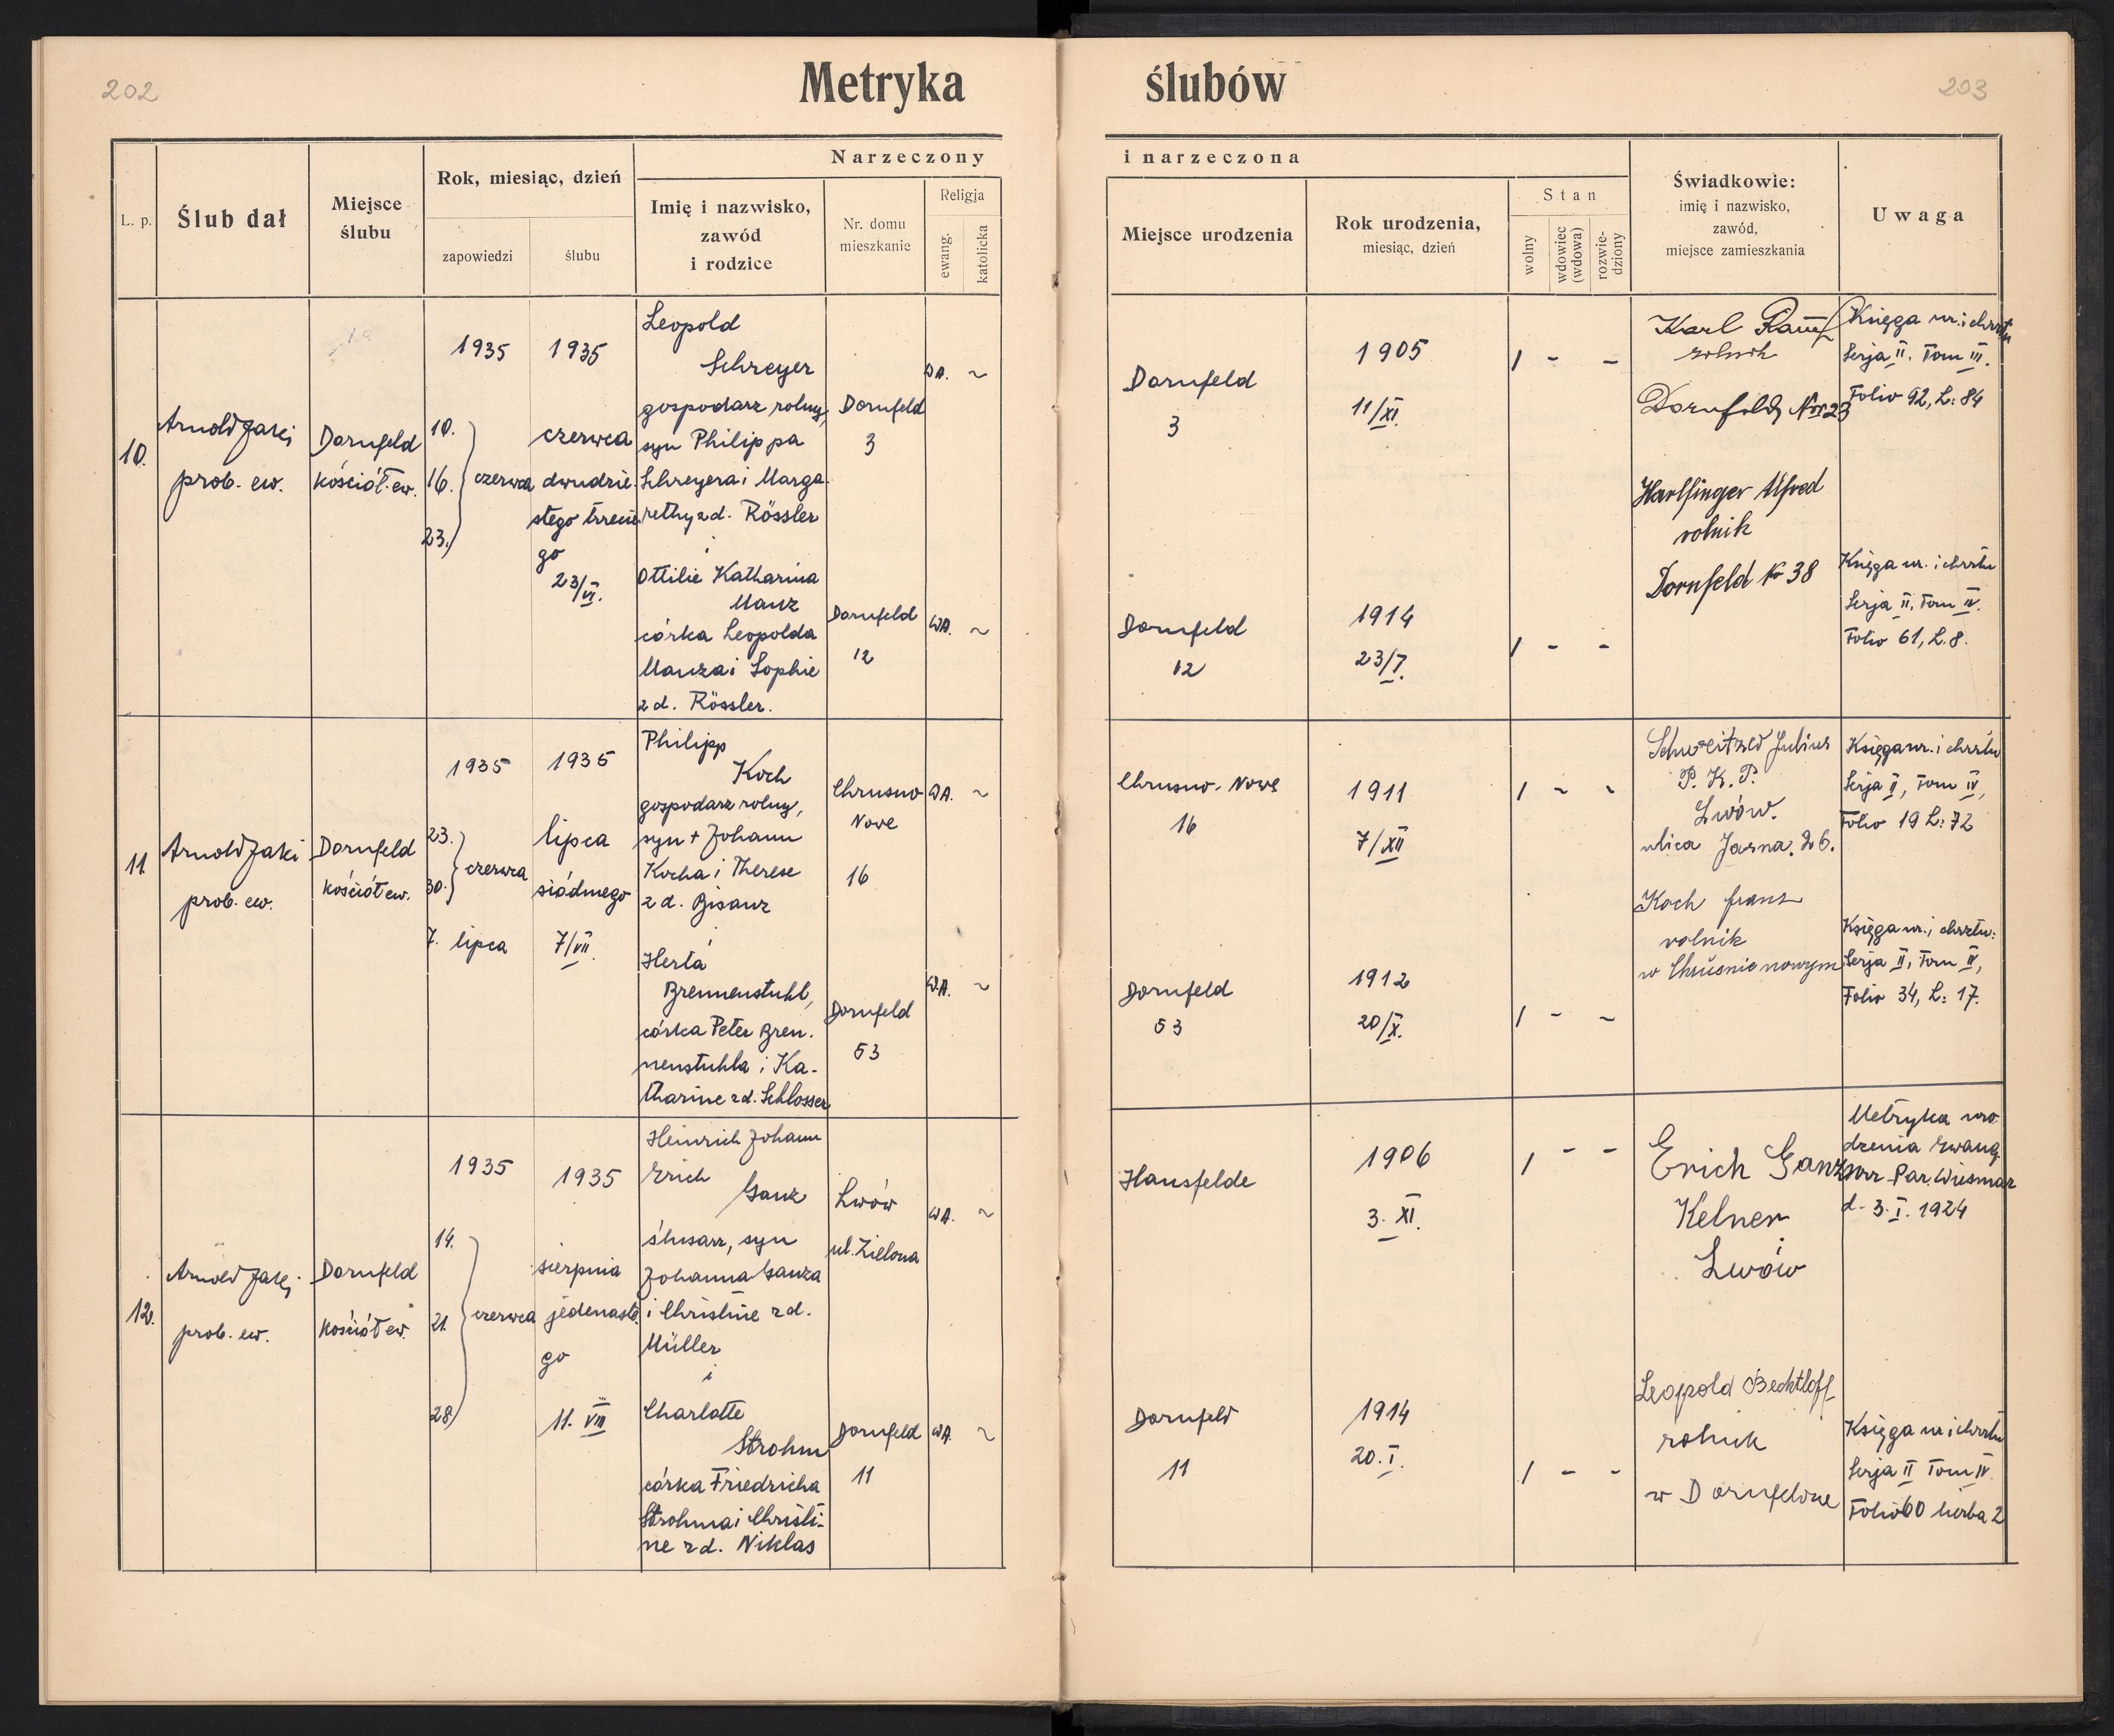 202
203
Metryka ślubów
Narzeczony i narzeczona
L. p.
Ślub dał
Miejsce
ślubu
Rok, miesiąc, dzień
zapowiedzi
ślubu
Imię i nazwisko,
zawód
i rodzice
Nr. domu
mieszkanie
Religja
ewang.
katolicka
Miejsce urodzenia
Rok urodzenia,
miesiąc, dzień
Stan
wolny
wdowiec
(wdowa)
rozwie-
dziony
Świadkowie:
imię i nazwisko,
zawód,
miejsce zamieszkania
Uwaga
10.
Arnold Jaki
prob. ew.
Dornfeld
kościół ew.
1935
10.
16. czerwca
23.
1935
czerwca
dwudzie-
stego trzecie
go
23/VI.
Leopold
Schreyer
gospodarz rolny,
syn Philippa
Schreyera i Marga-
rethy zd. Rössler
i
Ottilie Katharina
Manz
córka Leopolda
Manza i Sophie
zd. Rössler.
Dornfeld
3
Dornfeld
12
WA. ~
WA. ~
Dornfeld
3
Dornfeld
12
1905
11/XI.
1914
23/7.
/ - -
/ - -
Karl
rolnik
Dornfeld Nr 23
Harlfinger Alfred
rolnik
Dornfeld Nr 38
Księga ur. i chrztu
Serja II. Tom III.
Folio 92, L: 84
Księga ur. i chrztu
Serja II, Tom IV.
Folio 61, L. 8.
11.
Arnold Jaki
prob. ew.
Dornfeld
kościół ew.
1935
23.
30. czerwca
7. lipca
1935
lipca
siódmego
7/VII.
Philipp
Koch
gospodarz rolny,
syn + Johann
Kocha i Therese
zd. Bisanz
i
Herta
Brennenstuhl,
córka Peter Bren-
nenstuhla i Ka-
tharine zd. Schlosser
Chrusno
Nove
16
Dornfeld
53
WA. ~
WA. ~
Chrusno-Nove
16
Dornfeld
53
1911
7/XII
1912
20/X.
/ ~ -
/ - ~
Julius
P. K. P.
Lwów.
ulica Jasna. 26.
Koch Franz
rolnik
w Chruśnie nowym
Księga ur. i chrztu
Serja II, Tom IV,
Folio 19 L: 72
Księga ur. i chrztu:
Serja II, Tom IV,
Folio 34, L: 17.
12.
Arnold Jaki
prob. ew.
Dornfeld
kościół ew.
1935
14.
21. czerwca
28
1935
sierpnia
jedenaste-
go
11. VIII
Heinrich Johann
Erich
Ganz
ślusarz, syn
Johanna Ganza
i Christine zd.
Müller
i
Charlotte
Strohm
córka Friedricha
Strohma i Christi-
ne zd. Niklas
Lwów
ul. Zielona
Dornfeld
11
WA. ~
WA. ~
Hansfelde
Dornfeld
11
1906
3. XI.
1914
20. I.
/ - -
/ - -
Erich Ganz
Kelner
Lwów
Leopold Bechtloff
rolnik
w Dornfeldzie
Metryka uro-
dzenia ewang.
Par. Wiesmar
d. 3. I. 1924
Księga ur i chrztu
Serja II Tom IV.
Folio 60 liczba 2